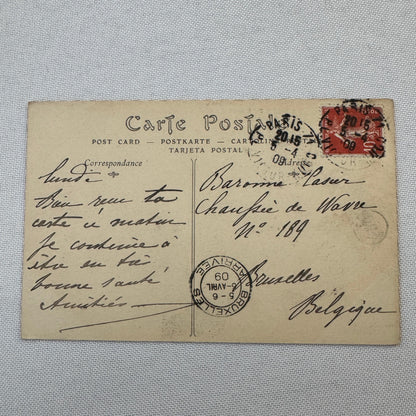 Carte Postale
POST CARD — POSTKARTE — CARTOLINA
TARJETA POSTAL
Correspondance
Adresse
lundi
Bien reçu ta
carte ce matin
Je continue à
être en très
bonne santé
Amitiés
Baronne
Chaussée de Wavre
Nº 189
Bruxelles
Belgique
PARIS
20 15
5-4
09
PARIS
20 15
5-4
09
BRUXELLES
5-6
6-AVRIL
09
ARRIVÉE